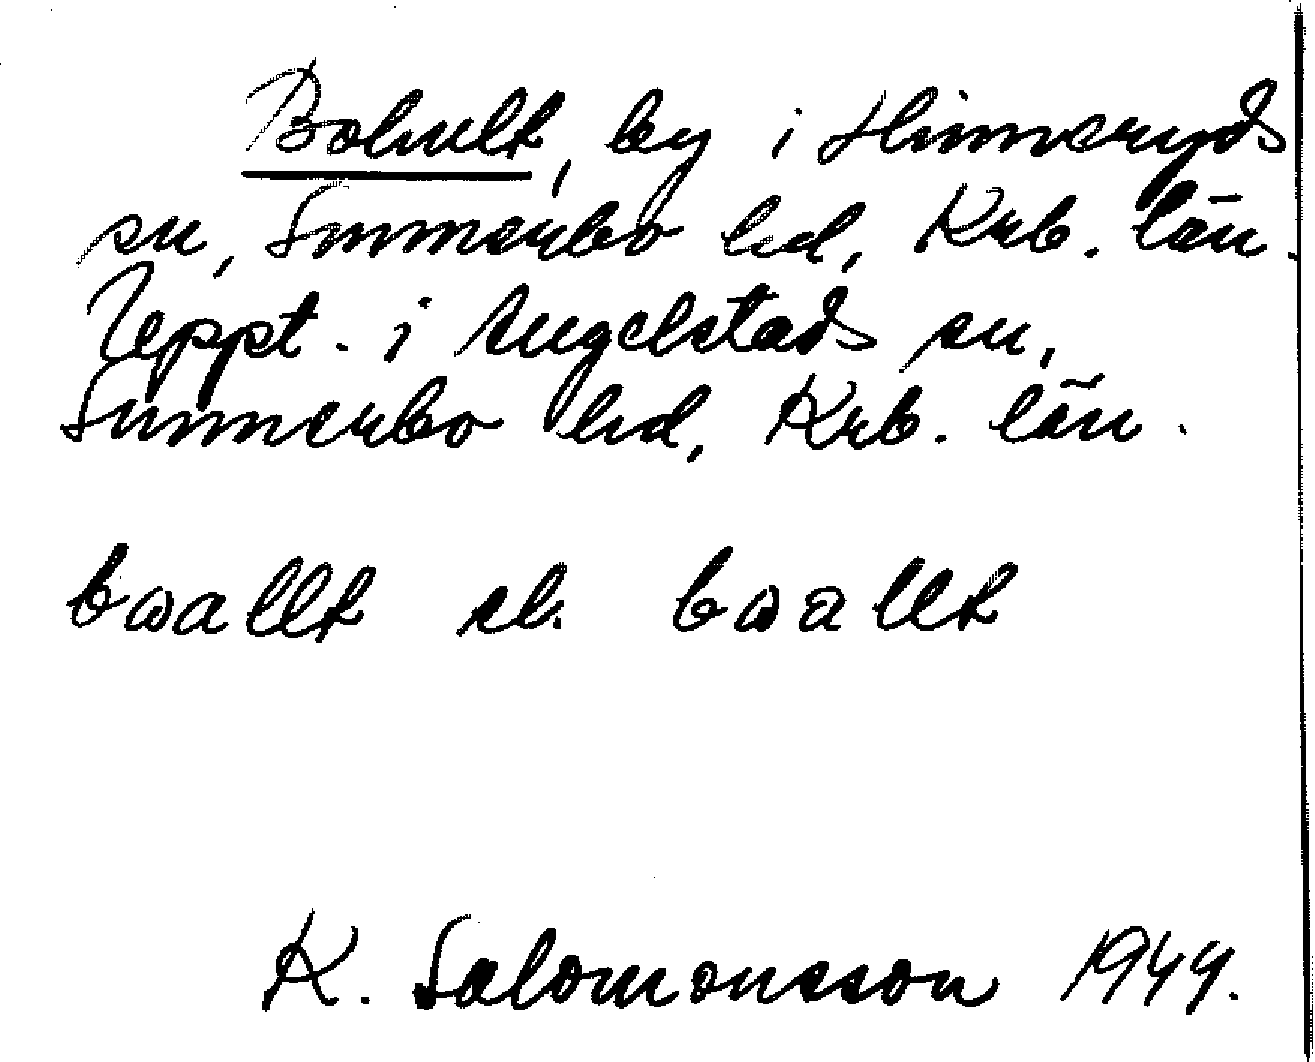 Bohult, by i Hinneryds
sn, Sunnerbo hd, Krb. län.
Uppt. i Angelstads sn,
Sunnerbo hd, Krb. län.
bωallt el. bωallt
K. Salomonsson 1944.